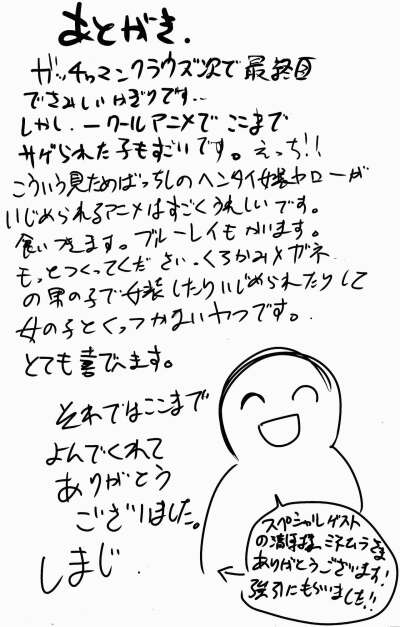 あとがき.
ガッチャマンクラウズ次で最終回
でさみしいかぎりです..
しかし.一クールアニメでここまで
サゲられた子もすごいです。えっち!!
こういう見ためばっちしのヘンタイ女装ヤローが
いじめられるアニメはすごくうれしいです。
食いつきます。ブルーレイもかいます。
もっとつくってください.くろかみメガネ
の男の子で女装したりいじめられたりして
女の子とくっつかないヤツです。
とても喜びます。
それではここまで
よんでくれて
ありがとう
ございました。
しまじ
スペシャルゲスト
の ミネムラさま
ありがとうございます!
強引にもらいました!!